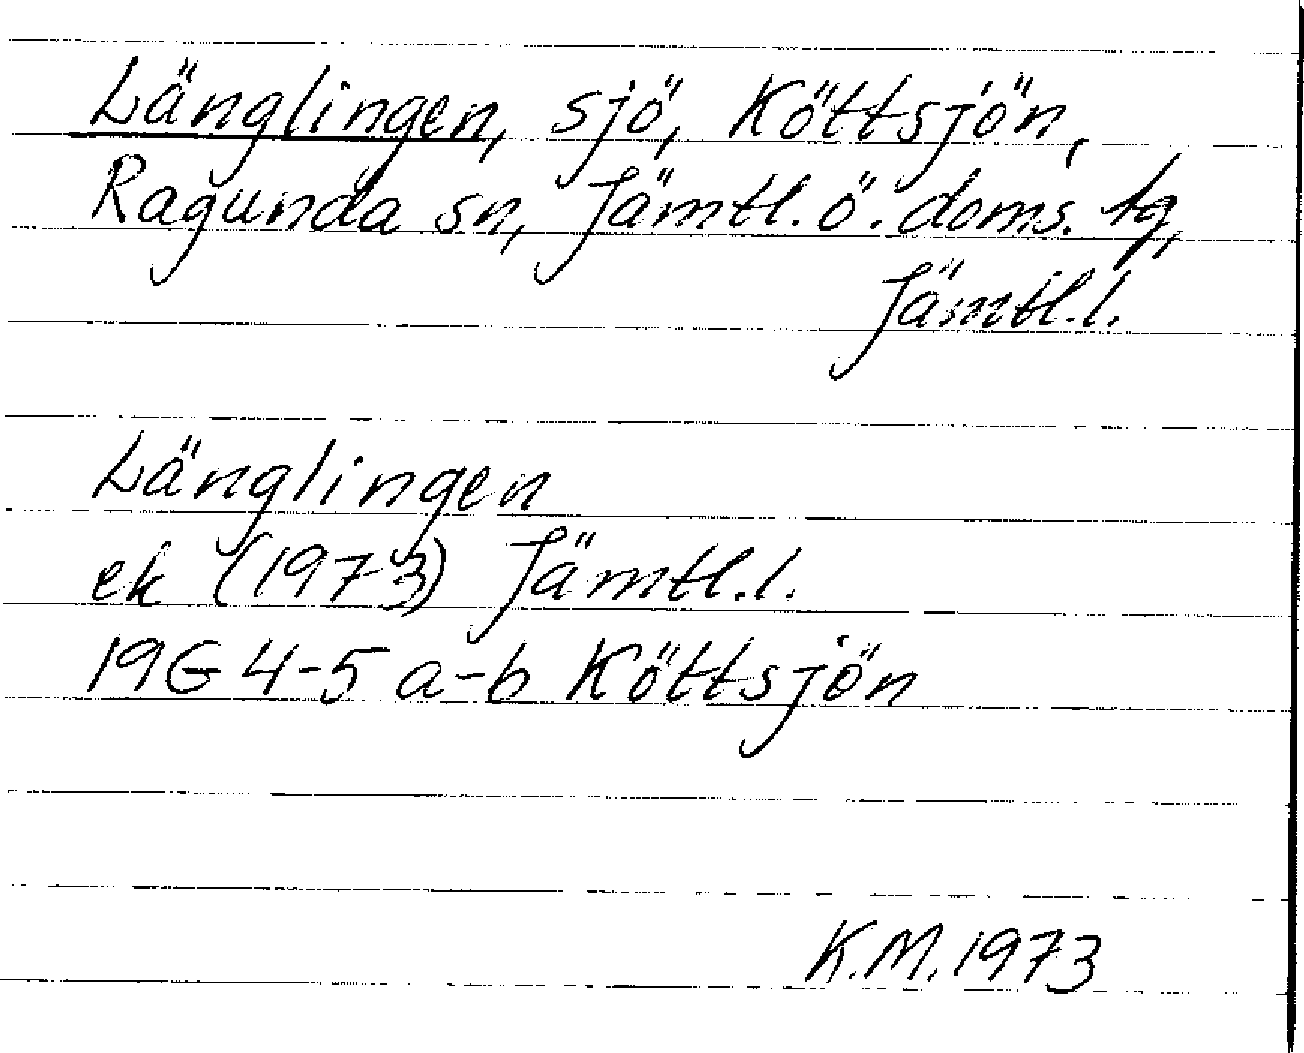 Länglingen, sjö, Köttsjön,
Ragunda sn, Jämtl. ö. doms. tg,
Jämtl. l.
Länglingen
ek (1973) Jämtl. l.
19G 4-5 a-b Köttsjön
K.M. 1973